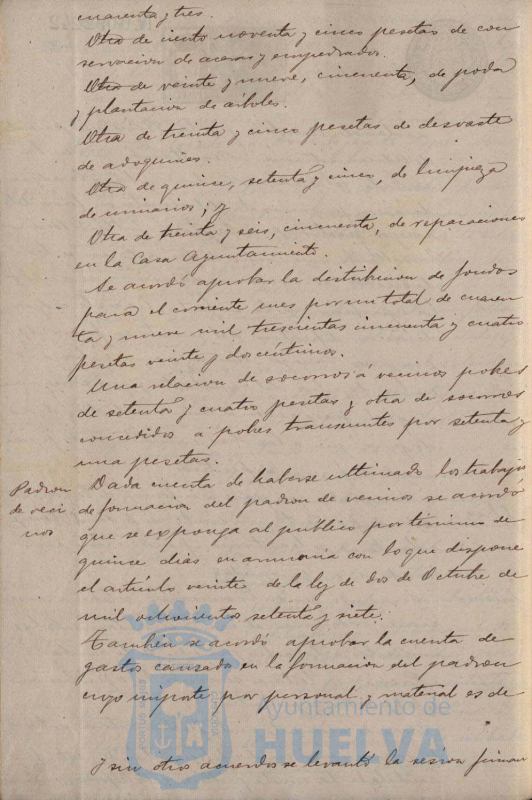 cuarenta y tres.
Otra de ciento noventa y cinco pesetas de con
servacion de aceras y empedrados.
Otra de veinte y nueve, cincuenta, de poda
y plantacion de árboles.
Otra de treinta y cinco pesetas de desvaste
de adoquines.
Otra de quince, setenta y cinco, de limpieza
de urinarios; y
Otra de treinta y seis, cincuenta, de reparaciones
en la Casa Ayuntamiento.
Se acordó aprobar la distribucion de fondos
para el corriente mes por un total de cuaren
ta y nueve mil trescientas cincuenta y cuatro
pesetas veinte y dos céntimos.
Una relacion de socorros á vecinos pobres
de setenta y cuatro pesetas y otra de socorros
concedidos á pobres transeuntes por setenta y
una pesetas.
Padron
de veci
nos
Dada cuenta de haberse ultimado los trabajos
de formacion del padron de vecinos se acordó
que se exponga al público por término de
quince dias en armonía con lo que dispone
el artículo veinte de la ley de dos de Octubre de
mil ochocientos setenta y siete.
Tambien se acordó aprobar la cuenta de
gastos causados en la formacion del padron
cuyo importe por personal y material es de
Ayuntamiento de
HUELVA
Y sin otros acuerdos se levantó la sesion firman